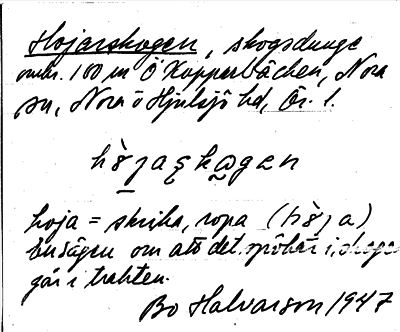 Hojarskogen, skogsdunge
omkr. 100 m Ö Kopperbäcken, Nora
sn, Nora o Hjulsjö hd, Ör. l.
hòjaşkωgen
hoja = skrika, ropa (hòja)
Sägen om att det spökar i skogen
går i trakten.
Bo Halvarson 1947